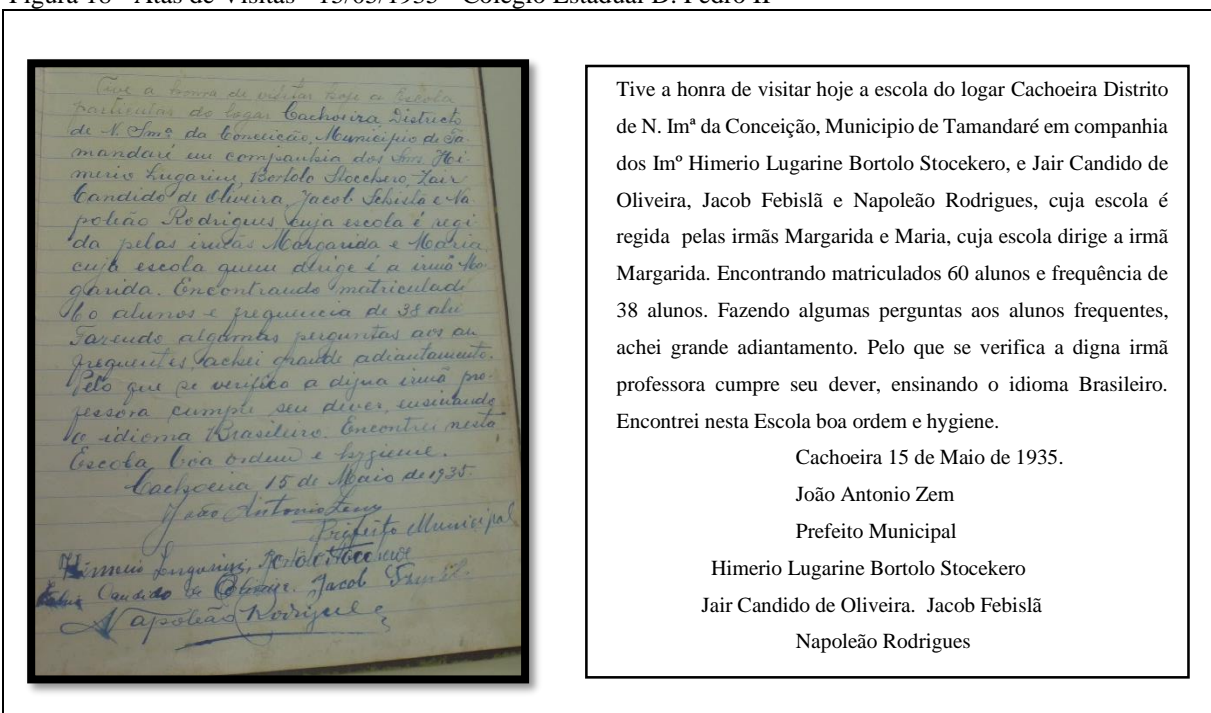 Figura 18 - Atas de Visitas - 15/05/1935 - Colégio Estadual D. Pedro II
Tive a honra de visitar hoje a Escola
particular do logar Cachoeira, Districto
de N. Smª da Conceição, Municipio de Ta-
mandaré em companhia dos Snrs Hi-
merio Lugarini, Bortolo Stocchero, Jair
Candido de Oliveira, Jacob e Na
poleão Rodrigues, cuja escola é regi
da pelas irmãs Margarida e Maria,
cuja escola quem dirige é a irmã Mar
garida. Encontrando matriculad
60 alumos e frequencia de 38 alu
Fazendo algumas perguntas aos au
frequentes, achei grande adiantamento.
Pelo que se verifica a digna irmã pro-
fessora cumpre seu dever, ensinando
o idioma Brasileiro. Encontrei nesta
Escola, boa ordem e hygiene.
Cachoeira, 15 de Maio de 1935.
João Antonio Zem
Prefeito Municipal
Himerio Lugarini, Bortolo Stocchero
Candido de Oliveira, Jacob
Napoleão Rodrigues
Tive a honra de visitar hoje a escola do logar Cachoeira Distrito
de N. Imª da Conceição, Municipio de Tamandaré em companhia
dos Imº Himerio Lugarine Bortolo Stocekero, e Jair Candido de
Oliveira, Jacob Febislã e Napoleão Rodrigues, cuja escola é
regida pelas irmãs Margarida e Maria, cuja escola dirige a irmã
Margarida. Encontrando matriculados 60 alunos e frequência de
38 alunos. Fazendo algumas perguntas aos alunos frequentes,
achei grande adiantamento. Pelo que se verifica a digna irmã
professora cumpre seu dever, ensinando o idioma Brasileiro.
Encontrei nesta Escola boa ordem e hygiene.
Cachoeira 15 de Maio de 1935.
João Antonio Zem
Prefeito Municipal
Himerio Lugarine Bortolo Stocekero
Jair Candido de Oliveira. Jacob Febislã
Napoleão Rodrigues